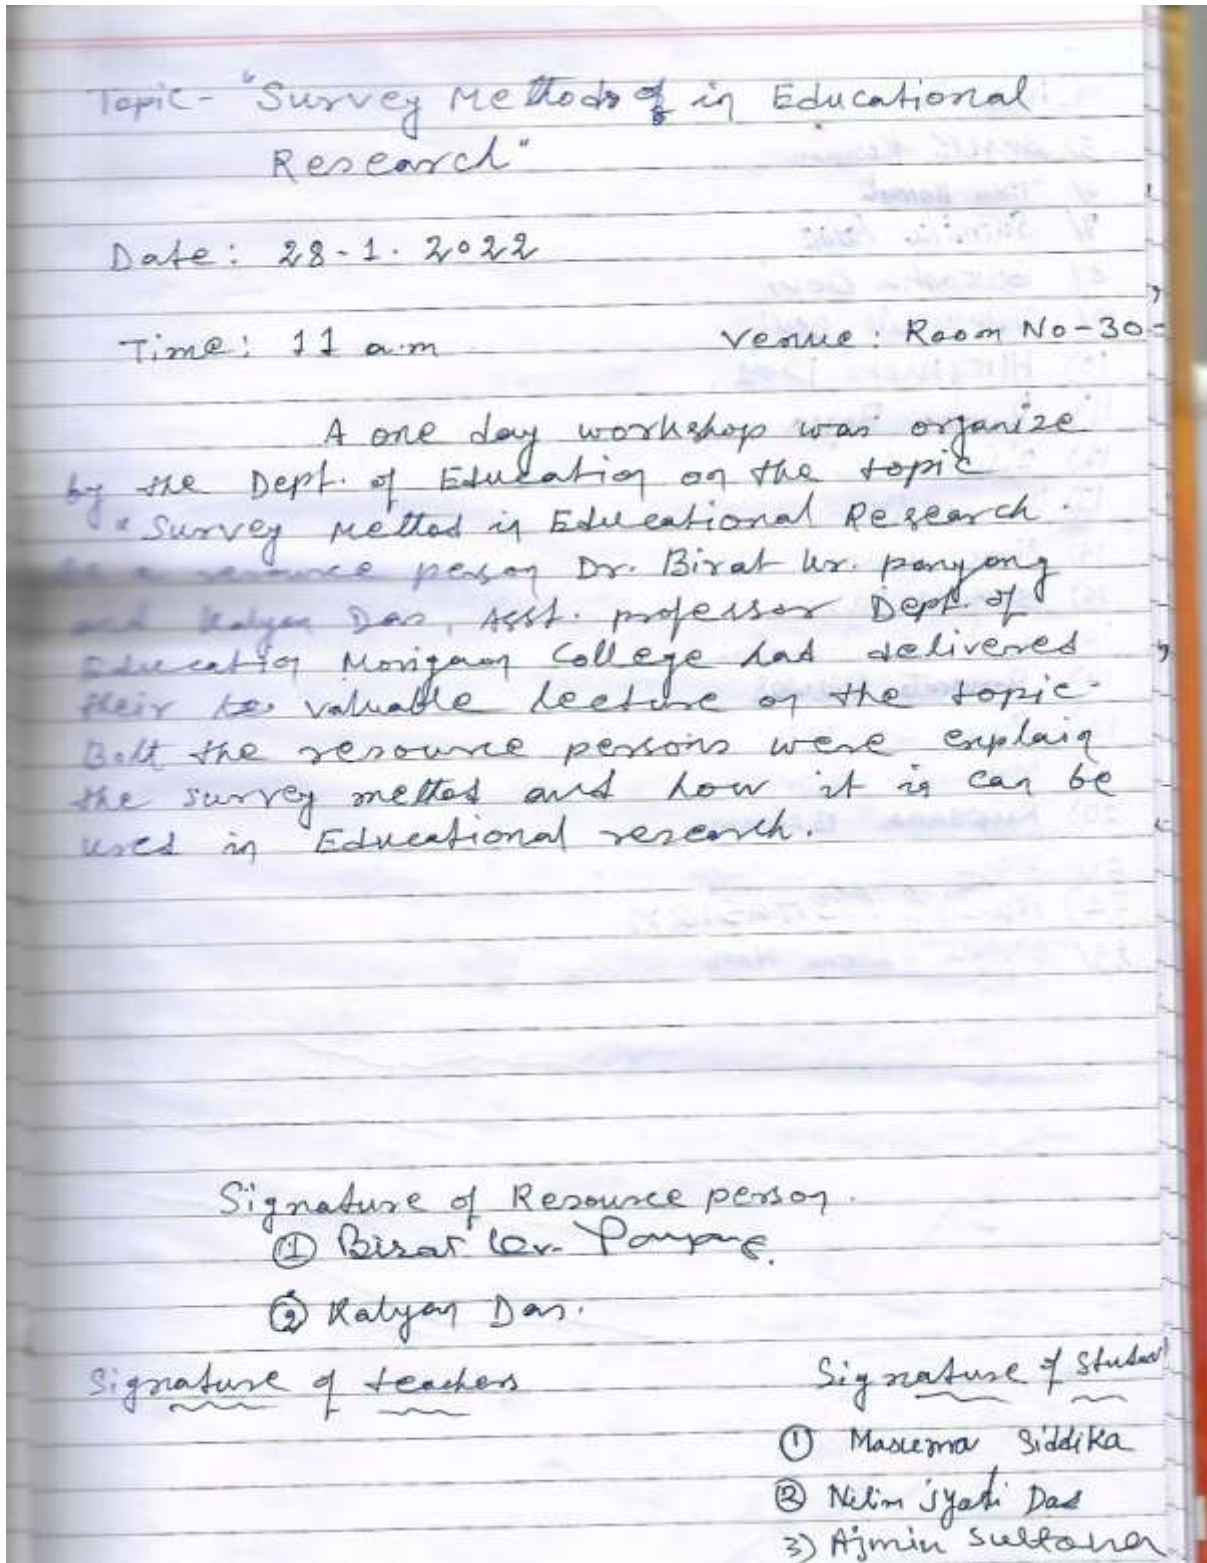 Topic- "Survey Methods of in Educational
Research"
Date: 28-1.2022
Time: 11 a.m
Venue: Room No-30
A one day workshop was organize
by the Dept. of Education on the topic
"Survey Method in Educational Research.
as a resource person Dr. Birat kr. panyang
and Kalyan Das, Asst. professor Dept. of
Education Morigaon College had delivered
their valuable lecture on the topic.
Both the resource persons were explain
the survey method and how it is can be
used in Educational research.
Signature of Resource person.
① Birat Kr. Panyang.
② Kalyan Das.
Signature of teachers
Signature of Student
① Masuma Siddika
② Nilim Jyoti Das
3) Ajmin Sultana